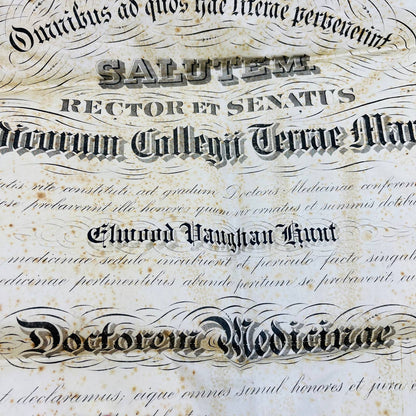 Omnibus ad quos hae literae pervenerint
SALUTEM.
RECTOR ET SENATUS
dicorum Collegii Terrae Mar
rite constitute ad gradum Doctoris Medicinae conferen
se probaverint illo honore quum vir ornatus et summis dotibu
Elwood Vaughan Hunt
medicinae sedulo incubuerit et periculo facto singula
dicinae pertinentibus abunde peritum se probaverit.
Doctorem Medicinae
t declaramus; eique omnes simul honores et jura c